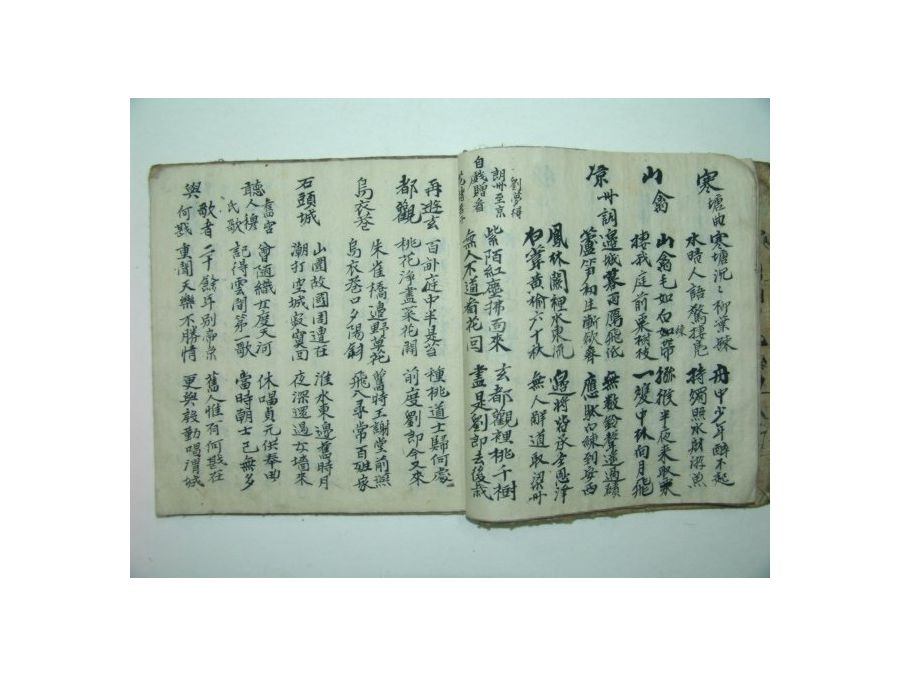 寒塘曲 寒塘沉〻柳葉疎 舟中少年醉不起
水晴人語驚捿鳧 持燭照水射游魚
山禽 山禽毛如白如練帶 獼猴半夜來取栗
棲我庭前栗樹枝 一雙中林向月飛
凉州詞 邊城暮雨鴈飛低 無數鈴聲遙過磧
蘆笋初生漸欲齊 應馱白練到安西
鳳林關裡水東流 邊將皆承主恩澤
白草黃楡六十秋 無人解道取梁州
劉夢得
朗州至京
自戲贈看
紫陌紅塵拂面來 玄都觀裡桃千樹
無人不道看花回 盡是劉郎去後栽
再遊玄 百畝庭中半是苔 種桃道士歸何處
都觀 桃花淨盡菜花開 前度劉郎今又來
烏衣巷 朱雀橋邊野草花 舊時王謝堂前燕
烏衣巷口夕陽斜 飛入尋常百姓家
石頭城 山圍故國周遭在 淮水東邊舊時月
潮打空城寂寞回 夜深還過女墻來
聽舊宮人穆氏歌 曾隨織女度天河 休唱貞元供奉曲
記得雲間第一歌 當時朝士已無多
與歌者何戡 二十餘年別帝京 舊人惟有何戡在
重聞天樂不勝情 更與殷勤唱渭城